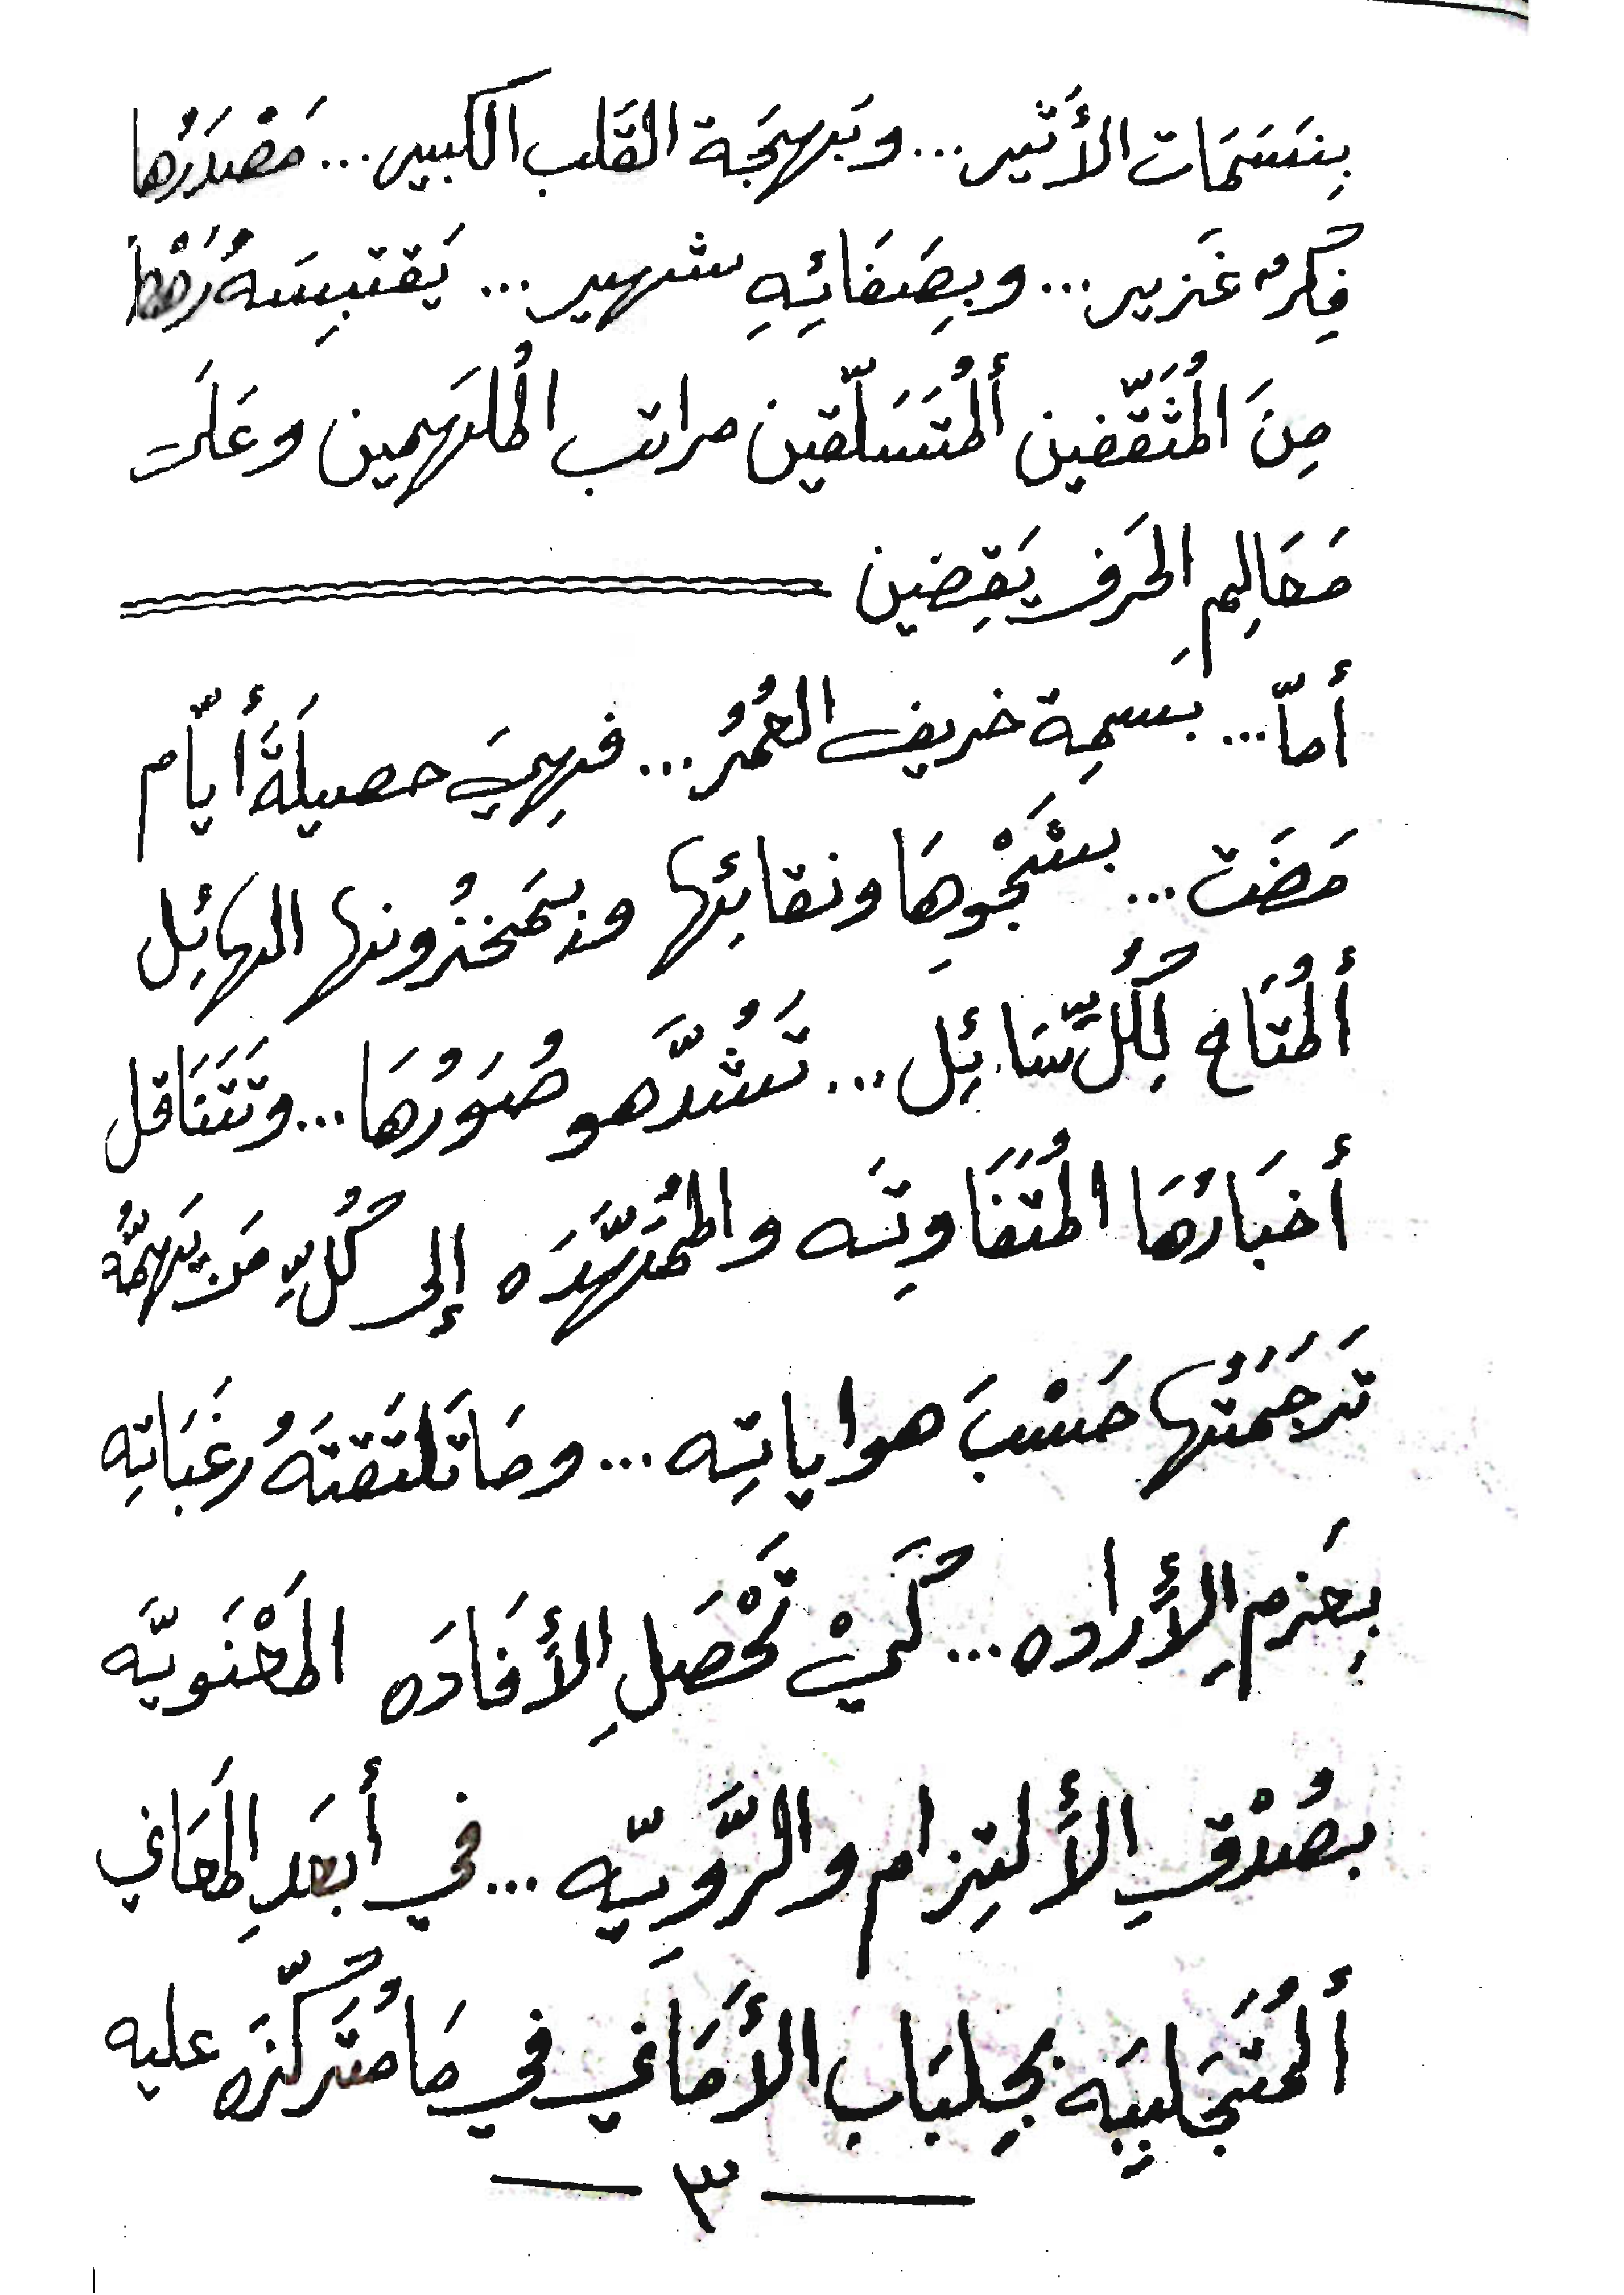 بِنَسَمَات الأَثير... وَبَهجَة القَلب الكبير... مَصْدَرُها
فِكرٌ غَزير... وبِصَفَائِهِ شهير... يَقتبِسَهُ رَهْط
مِنَ المُثَقَّفين أَلمُتَسَلّقين مراتب المُلهَمين وعَلَى
مَعَالِمِ الحَرف يَقِضين
أمّا... بَسمِة خريف العُمُر... فهِيَ حصيلَةَ أيّام
مَضَت... بشَجْوِهَا ونقائِها وبمَخزُونها الهائِل
أَلمُتَاح لِكُلِّ سَائِل... تَشُدَّهو صُوَرُهَا... وتَتَنَاقل
أخبَارُهَا المُتَفَاوتِه والمُمَهَّدَه إلى كُلِّ مَن يَهمُّه
تَرجَمَتُها حَسْبَ هواياتِه... ومَا تَلتَقتَهُ رغَبَاتِه
بِعَزمِ الأَراده... كَيْ تَحْصَلِ الأَفَادَه المَعْنَويَّه
بصُدْقِ الأَلتِزام والرَّوِيّه... في أَبعَدِ المَعَاني
أَلمُتَجَلبِبَه بِجِلبَاب الأَمَاني في مَا مُتَركّزَه عليه
— ٣ —